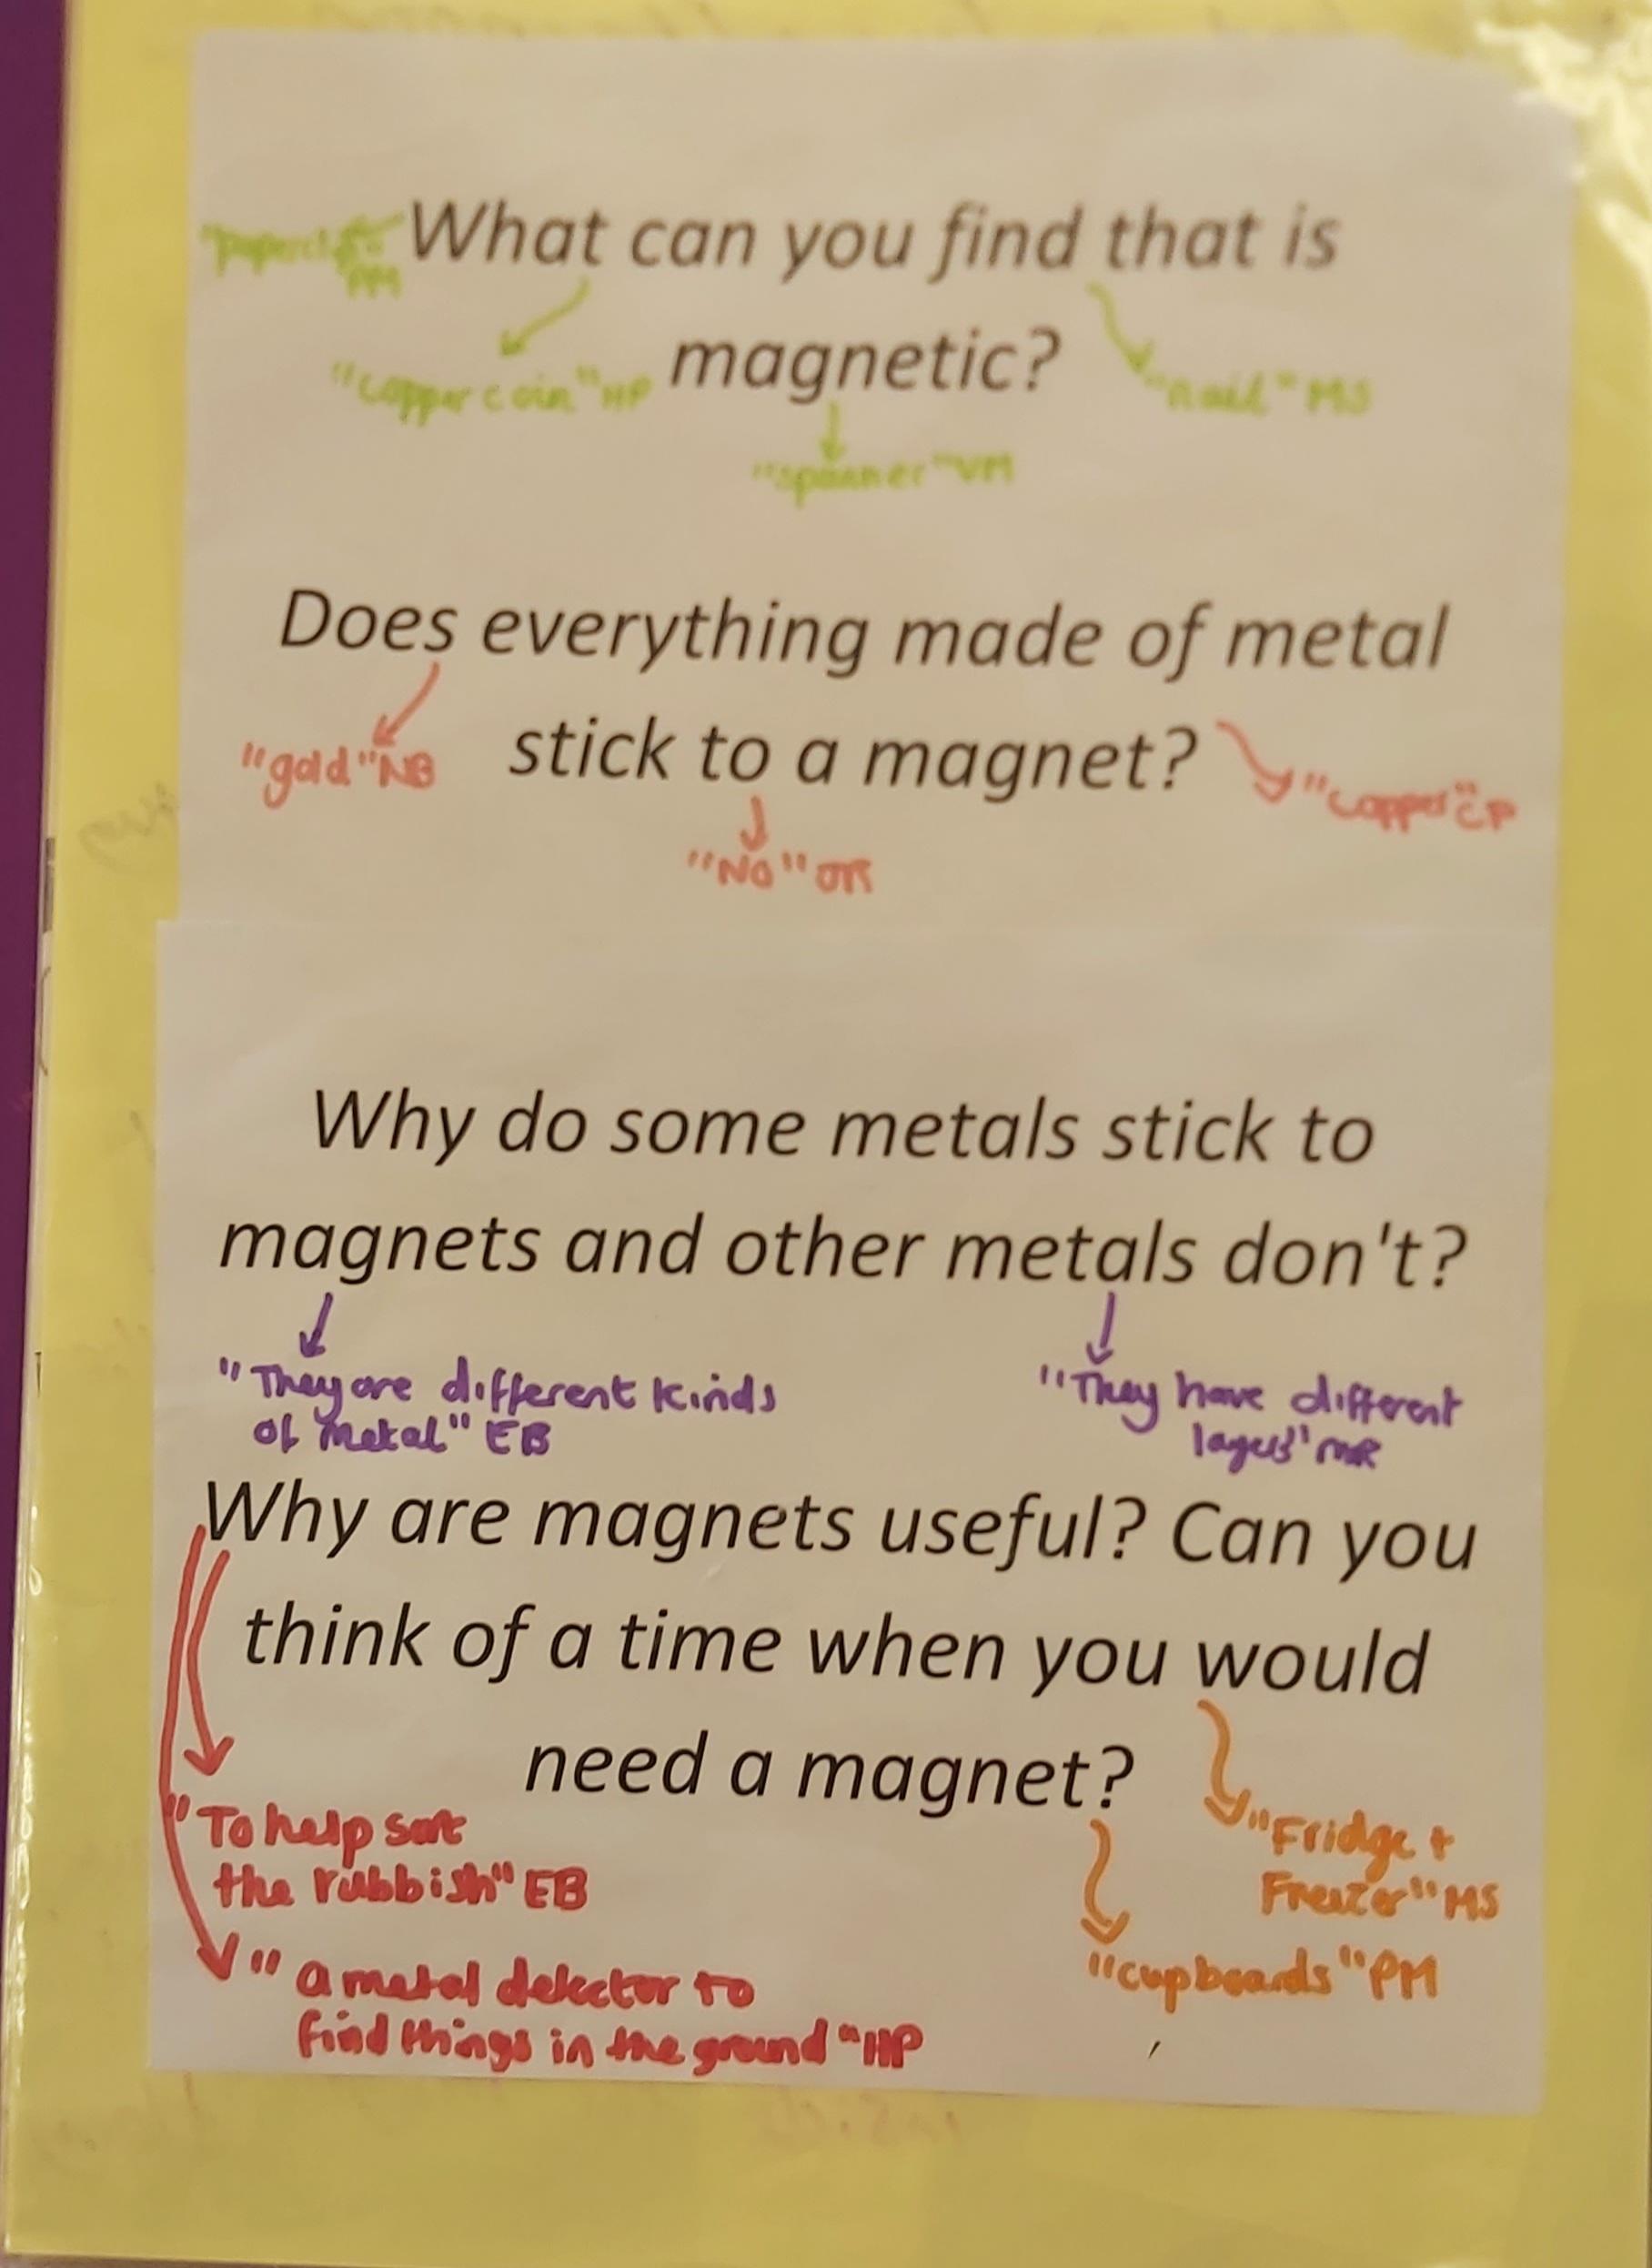 "paperclip" PM What can you find that is
"copper coin" HP magnetic? "nail" MS
"spanner" VM
Does everything made of metal
"gold" NB stick to a magnet? "copper" CP
"No" OR
Why do some metals stick to
magnets and other metals don't?
"They are different kinds
of metal" EB
"They have different
layers" MR
Why are magnets useful? Can you
think of a time when you would
need a magnet?
"To help sort
the rubbish" EB
"a metal detector to
find things in the ground" HP
"Fridge +
Freezer" MS
"cupboards" PM